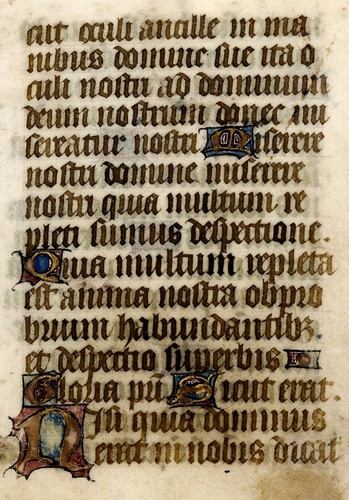 cut oculi ancille in ma
nibus domine sue ita o
culi nostri ad dominum
deum nostrum donec mi
sereatur nostri Miserere
nostri domine miserere
nostri quia multum re
pleti sumus despectione.
Quia multum repleta
est anima nostra obpro
brium habundantibz
et despectio superbis
Gloria pri Sicut erat.
Nisi quia dominus
erat in nobis dicat